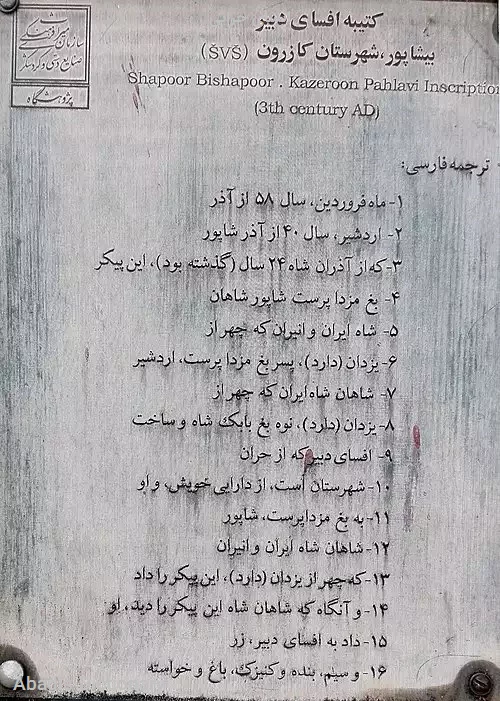 کتیبه افسای دبیر
بیشاپور،شهرستان کازرون (ŠVŠ)
Shapoor Bishapoor . Kazeroon Pahlavi Inscription
(3th century AD)
سازمان میراث فرهنگی
صنایع دستی و گردشگری
پژوهشگاه
ترجمه فارسی:
۱- ماه فروردین، سال ۵۸ از آذر
۲- اردشیر، سال ۴۰ از آذر شاپور
۳-که از آذران شاه ۲۴ سال (گذشته بود)، این پیکر
۴- بغ مزدا پرست شاپور شاهان
۵- شاه ایران و انیران که چهر از
۶- یزدان (دارد)، پسر بغ مزدا پرست، اردشیر
۷- شاهان شاه ایران که چهر از
۸- یزدان (دارد)، نوه بغ بابک شاه و ساخت
۹- افسای دبیر که از حران
۱۰- شهرستان است، از دارایی خویش، و او
۱۱- به بغ مزداپرست، شاپور
۱۲- شاهان شاه ایران و انیران
۱۳-که چهر از یزدان (دارد)، این پیکر را داد
۱۴- و آنگاه که شاهان شاه این پیکر را دید، او
۱۵- داد به افسای دبیر، زر
۱۶- و سیم، بنده و کنیزک، باغ و خواسته